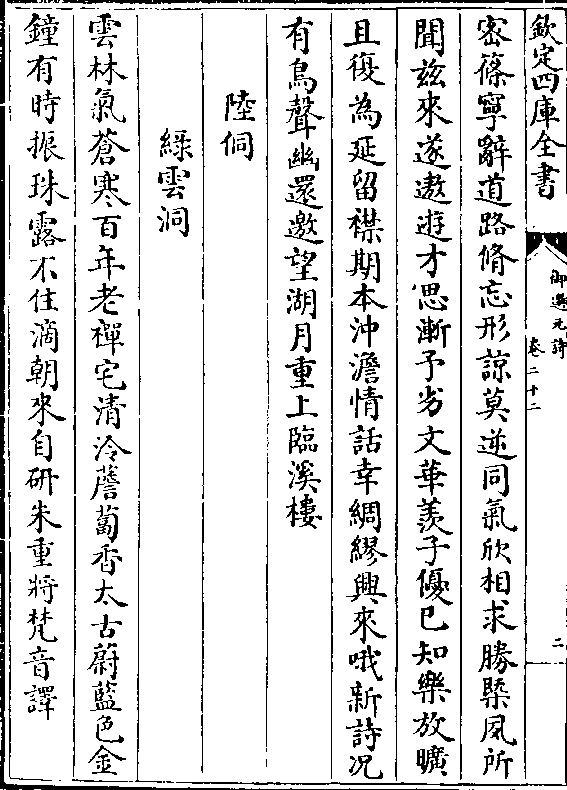 欽定四庫全書
御選元詩
卷二十二
二
密篠寧辭道路脩忘形諒莫逆同氣欣相求勝槩夙所
聞兹來遂遨遊才思漸予劣文華羨子優已知樂放曠
且復為延留襟期本沖澹情話幸綢繆興來哦新詩况
有鳥聲幽還邀望湖月重上臨溪樓
陸侗
緑雲洞
雲林氣蒼寒百年老禪宅清泠薝蔔香太古蔚藍色金
鐘有時振珠露不住滴朝來自研朱重將梵音譯